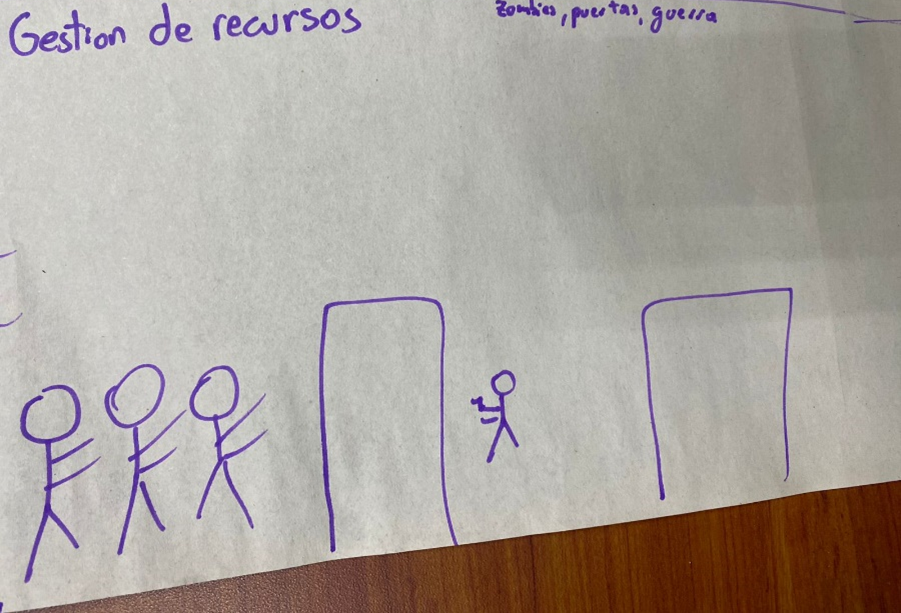 Gestion de recursos
Zombies, puertas, guerra